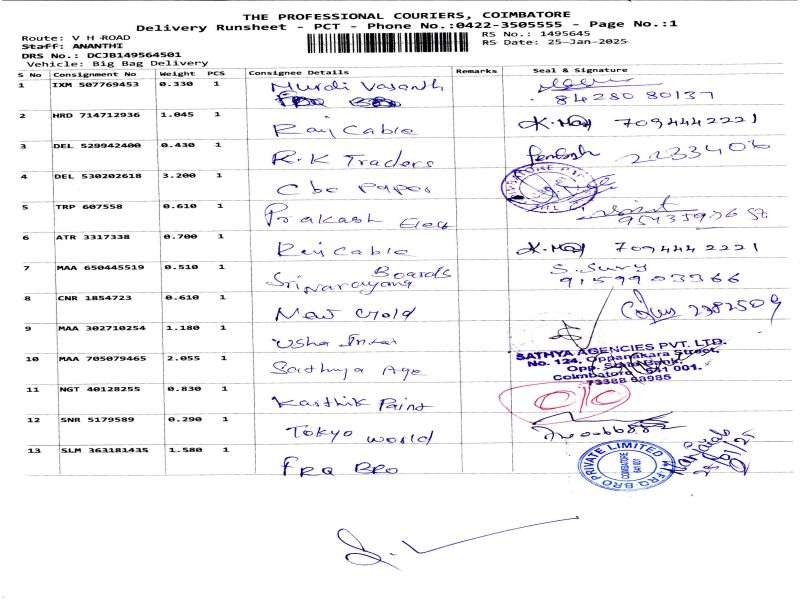 THE PROFESSIONAL COURIERS, COIMBATORE
Delivery Runsheet - PCT - Phone No.:0422-3505555 - Page No.:1
Route: V H ROAD
RS No.: 1495645
Staff: ANANTHI
RS Date: 25-Jan-2025
DRS No.: DCJB149564501
Vehicle: Big Bag Delivery
S No Consignment No Weight PCS Consignee Details Remarks Seal & Signature
1 IXM 507769453 0.330 1 Murali Vasanth
84280 80137
2 HRD 714712936 1.045 1 Raj Cable 7094442221
3 DEL 529942400 0.430 1 R.K Traders 2233406
4 DEL 530202618 3.200 1 Cbe Paper
5 TRP 607558 0.610 1 Prakash Elec
6 ATR 3317338 0.700 1 Raj Cable 7094442221
7 MAA 650445519 0.510 1 Sri Narayana Boards S. Surya
9159903366
8 CNR 1854723 0.610 1 New Gold 2382509
9 MAA 302710254 1.180 1 Usha
10 MAA 705079465 2.055 1 Sathya Age
SATHYA AGENCIES PVT. LTD.
No. 124, Oppanakara Street,
Opp. State Bank,
Coimbatore - 641 001.
73388 98985
11 NGT 40128255 0.830 1 Karthik Paint
12 SNR 5179589 0.290 1 Tokyo world
13 SLM 363181435 1.580 1 FRQ BRO
FRQ BRO PRIVATE LIMITED
COIMBATORE
641 001